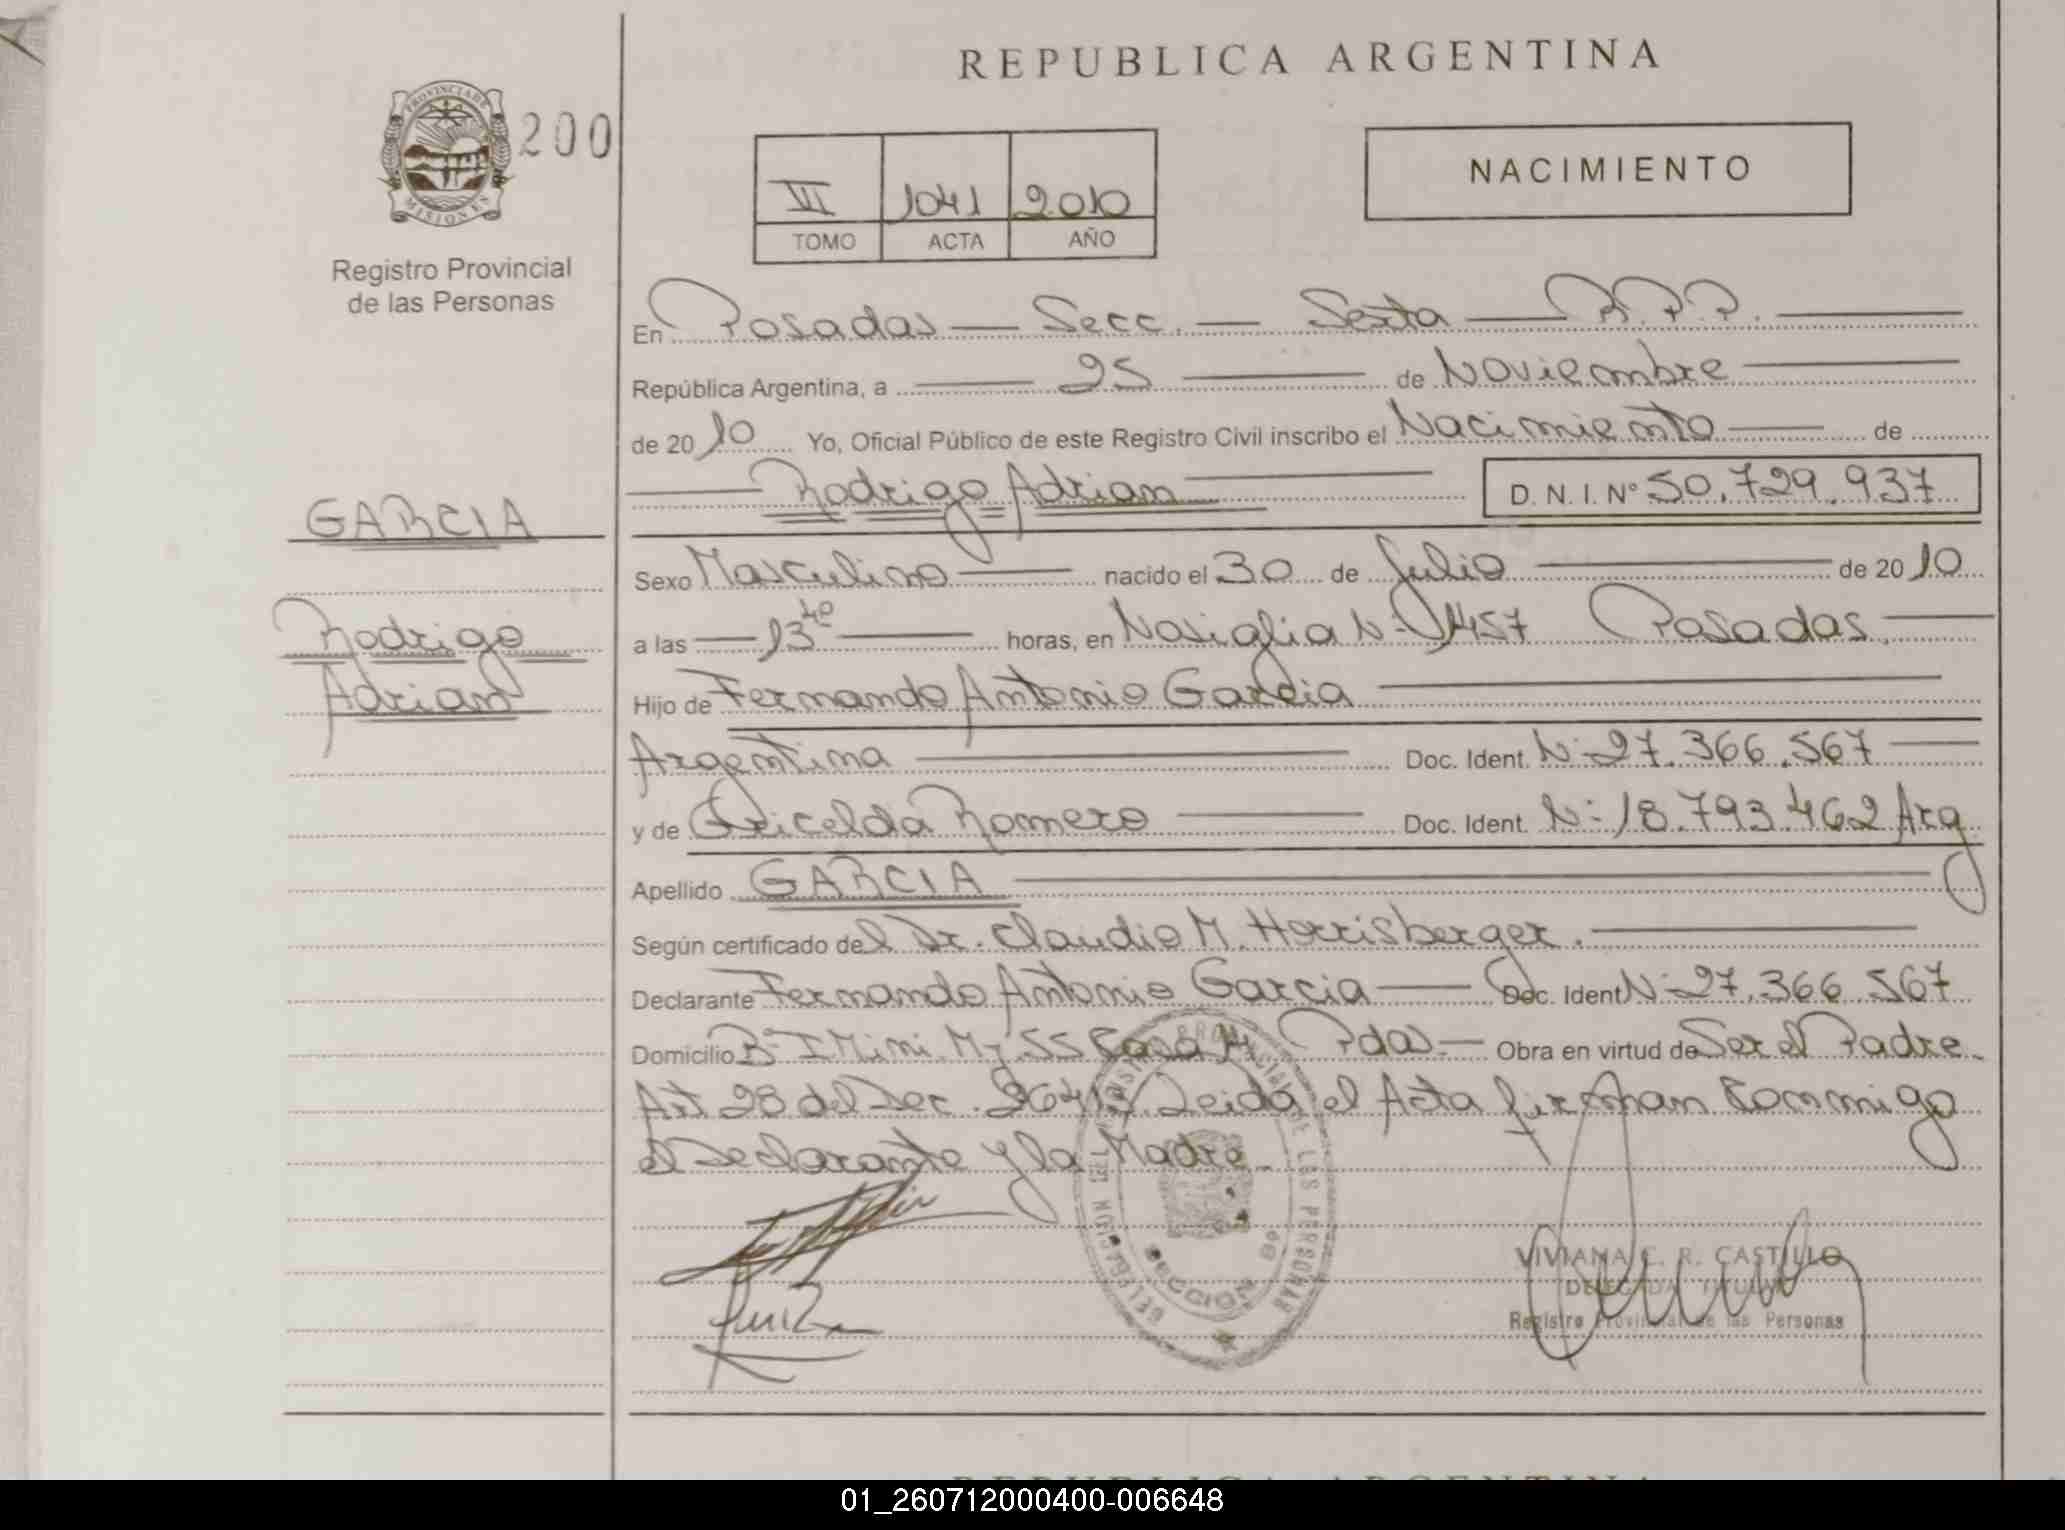 REPUBLICA ARGENTINA
PROVINCIA DE
MISIONES
200
Registro Provincial
de las Personas
VI 1041 2010
TOMO ACTA AÑO
NACIMIENTO
En Posadas — Secc. — Sexta — R.P.P.
República Argentina, a — 25 — de Noviembre
de 2010 Yo, Oficial Público de este Registro Civil inscribo el Nacimiento — de
Rodrigo Adrian D.N.I. Nº 50.729.937
GARCIA
Rodrigo
Adrian
Sexo Masculino — nacido el 30 de Julio — de 2010
a las — 13 40 — horas, en Nosiglia Nº 1457 Posadas.
Hijo de Fernando Antonio Garcia
Argentina — Doc. Ident. Nº 27.366.567
y de Gricelda Romero — Doc. Ident. Nº 18.793.462 Arg
Apellido GARCIA
Según certificado del Dr. Claudio M. Horrisberger.
Declarante Fernando Antonio Garcia — Doc. Ident Nº 27.366.567
Domicilio Bº I Mini. Mz 55 Casa Pdas. — Obra en virtud de Ser el Padre.
Art 28 del Dec. Leida el Acta firman Conmigo
el Declarante y la Madre.
DELEGACION DEL REGISTRO PROVINCIAL DE LAS PERSONAS
SECCION 6º
VIVIANA C. R. CASTILLO
DELEGADA TITULAR
Registro Provincial de las Personas
REPUBLICA ARGENTINA
01_260712000400-006648